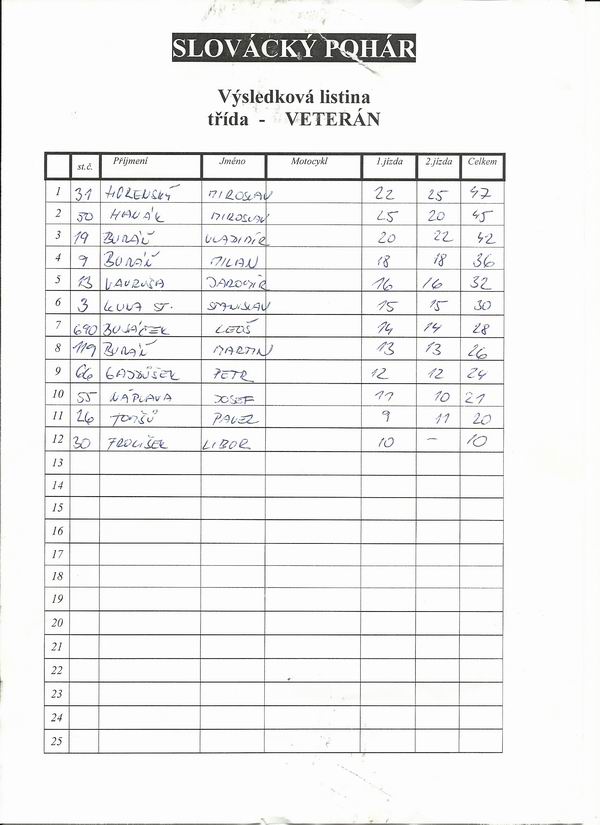 SLOVÁCKÝ POHÁR
Výsledková listina
třída - VETERÁN
st.č. Příjmení Jméno Motocykl 1.jízda 2.jízda Celkem
1 31 HOŘENSKÝ MIROSLAV 22 25 47
2 50 HANÁK MIROSLAV 25 20 45
3 19 BURÁŇ VLADIMÍR 20 22 42
4 9 BURÁŇ MILAN 18 18 36
5 13 VAVRUŠA JAROMÍR 16 16 32
6 3 ST. STANISLAV 15 15 30
7 690 BUJÁČEK LEOŠ 14 14 28
8 119 BURÁŇ MARTIN 13 13 26
9 66 GAJDŮŠEK PETR 12 12 24
10 55 NÁPLAVA JOSEF 11 10 21
11 26 TOMŠŮ PAVEL 9 11 20
12 30 FROLIŠEK LIBOR 10 - 10
13
14
15
16
17
18
19
20
21
22
23
24
25